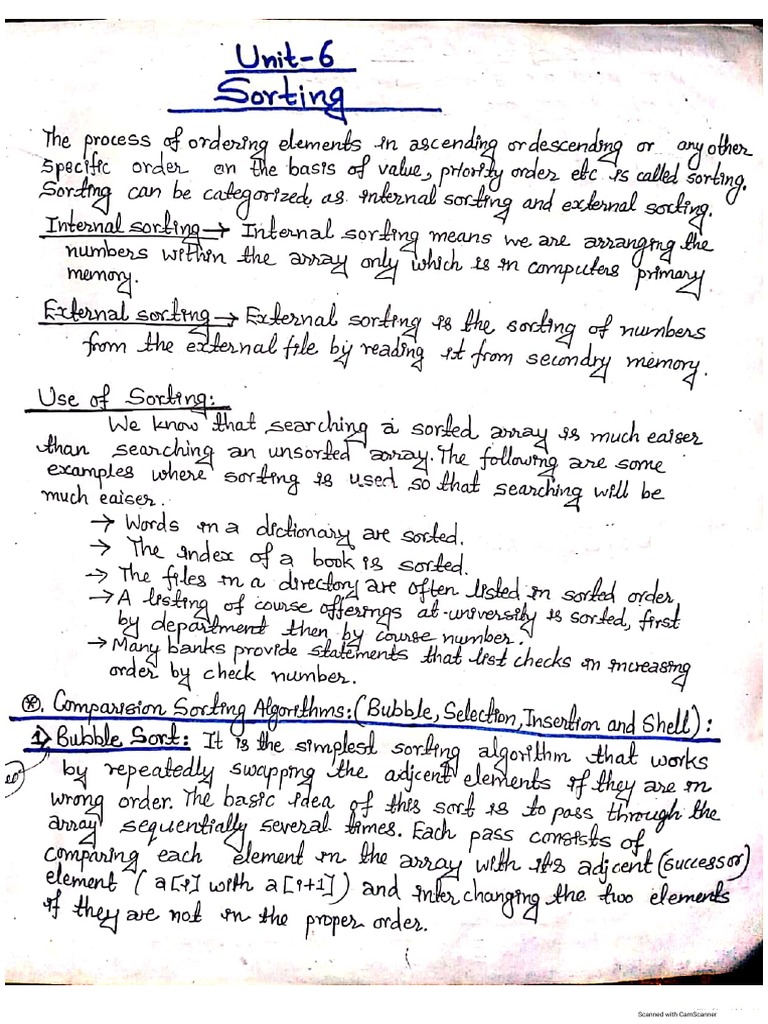 Unit-6
Sorting
The process of ordering elements in ascending or descending or any other
specific order on the basis of value, priority order etc is called sorting.
Sorting can be categorized as internal sorting and external sorting.
Internal sorting → Internal sorting means we are arranging the
numbers within the array only which is in computers primary
memory.
External sorting → External sorting is the sorting of numbers
from the external file by reading it from secondry memory.
Use of Sorting:
We know that searching a sorted array is much eaiser
than searching an unsorted array. The following are some
examples where sorting is used so that searching will be
much eaiser.
→ Words in a dictionary are sorted.
→ The index of a book is sorted.
→ The files in a directory are often listed in sorted order
→ A listing of course offerings at university is sorted, first
by department then by course number.
→ Many banks provide statements that list checks in increasing
order by check number.
⊛. Comparision Sorting Algorithms: (Bubble, Selection, Insertion and Shell):
1) Bubble Sort: It is the simplest sorting algorithm that works
by repeatedly swapping the adjcent elements if they are in
wrong order. The basic idea of this sort is to pass through the
array sequentially several times. Each pass consists of
comparing each element in the array with its adjcent (successor)
element ( a[i] with a[i+1]) and inter changing the two elements
if they are not in the proper order.
Scanned with CamScanner